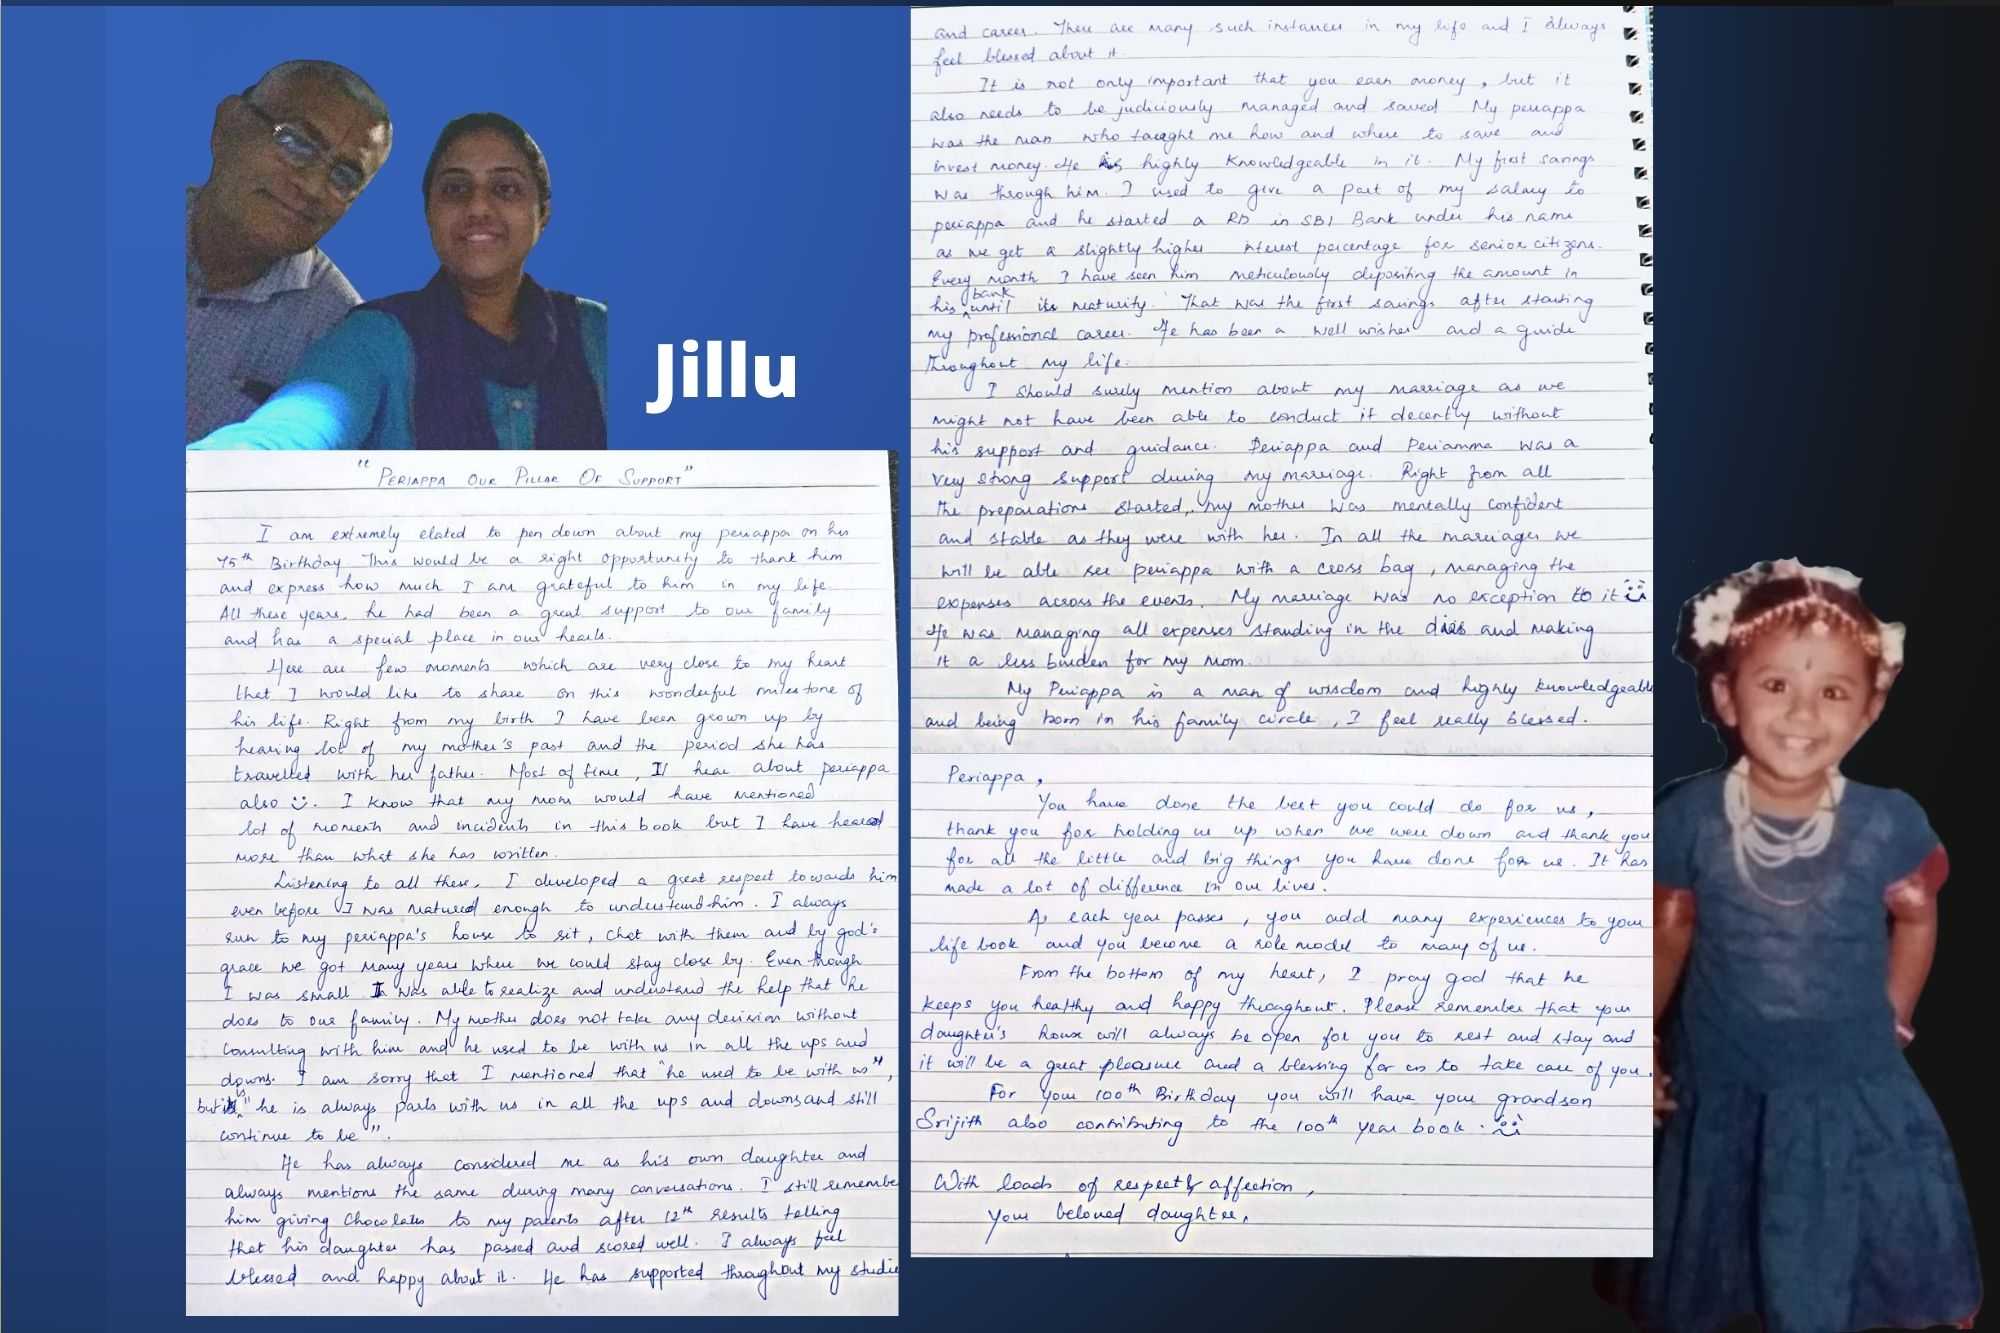 Jillu
"PERIAPPA OUR PILLAR OF SUPPORT"
I am extremely elated to pen down about my periappa on his
75th Birthday. This would be a right opportunity to thank him
and express how much I am grateful to him in my life.
All these years, he had been a great support to our family
and has a special place in our hearts.
Here are few moments which are very close to my heart
that I would like to share on this wonderful milestone of
his life. Right from my birth I have been grown up by
hearing lot of my mother's past and the period she has
travelled with her father. Most of time, I'll hear about periappa
also :). I know that my mom would have mentioned
lot of moments and incidents in this book but I have heared
more than what she has written.
Listening to all these, I developed a great respect towards him
even before I was matured enough to understand him. I always
run to my periappa's house to sit, chat with them and by god's
grace we got many years where we could stay close by. Even though
I was small I was able to realize and understand the help that he
does to our family. My mother does not take any decision without
consulting with him and he used to be with us in all the ups and
downs. I am sorry that I mentioned that "he used to be with us",
but its "he is always parts with us in all the ups and downs and still
continue to be".
He has always considered me as his own daughter and
always mentions the same during many conversations. I still remembe
him giving chocolates to my parents after 12th results telling
that his daughter has passed and scored well. I always feel
blessed and happy about it. He has supported throughout my studie
and career. There are many such instances in my life and I always
feel blessed about it.
It is not only important that you earn money, but it
also needs to be judiciously managed and saved. My periappa
was the man who taught me how and where to save and
invest money. He is highly knowledgeable in it. My first savings
was through him. I used to give a part of my salary to
periappa and he started a RD in SBI Bank under his name
as we get a slightly higher interest percentage for senior citizens.
Every month I have seen him meticulously depositing the amount in
his bank until its maturity. That was the first savings after starting
my professional career. He has been a well wisher and a guide
throughout my life.
I should surely mention about my marriage as we
might not have been able to conduct it decently without
his support and guidance. Periappa and Periamma was a
very strong support during my marriage. Right from all
the preparations started, my mother was mentally confident
and stable as they were with her. In all the marriages we
will be able see periappa with a cross bag, managing the
expenses across the events. My marriage was no exception to it :)
He was managing all expenses standing in the and making
it a less burden for my mom.
My Periappa is a man of wisdom and highly knowledgeable
and being born in his family circle, I feel really blessed.
Periappa,
You have done the best you could do for us,
thank you for holding us up when we were down and thank you
for all the little and big things you have done for us. It has
made a lot of difference in our lives.
As each year passes, you add many experiences to your
life book and you become a role model to many of us.
From the bottom of my heart, I pray god that he
keeps you healthy and happy throughout. Please remember that your
daughter's house will always be open for you to rest and stay and
it will be a great pleasure and a blessing for us to take care of you.
For your 100th Birthday you will have your grandson
Srijith also contributing to the 100th year book. :)
With loads of respect & affection,
Your beloved daughter,